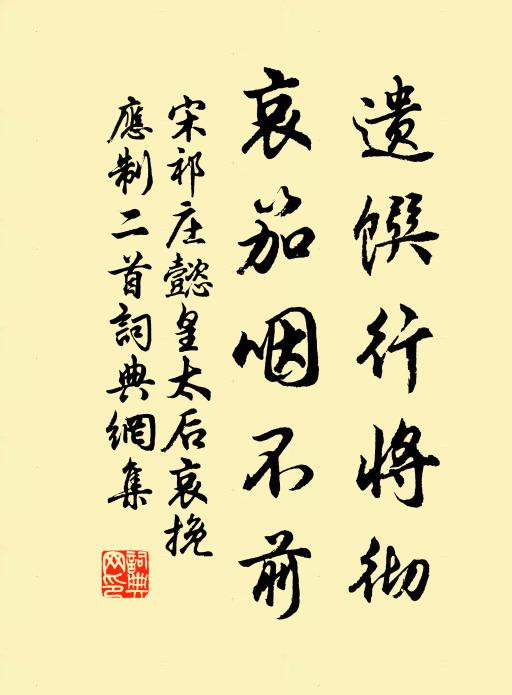 遗馔行将彻
哀笳咽不前
宋祁庄懿皇太后哀挽
應制二首詞典網集
詞典网印